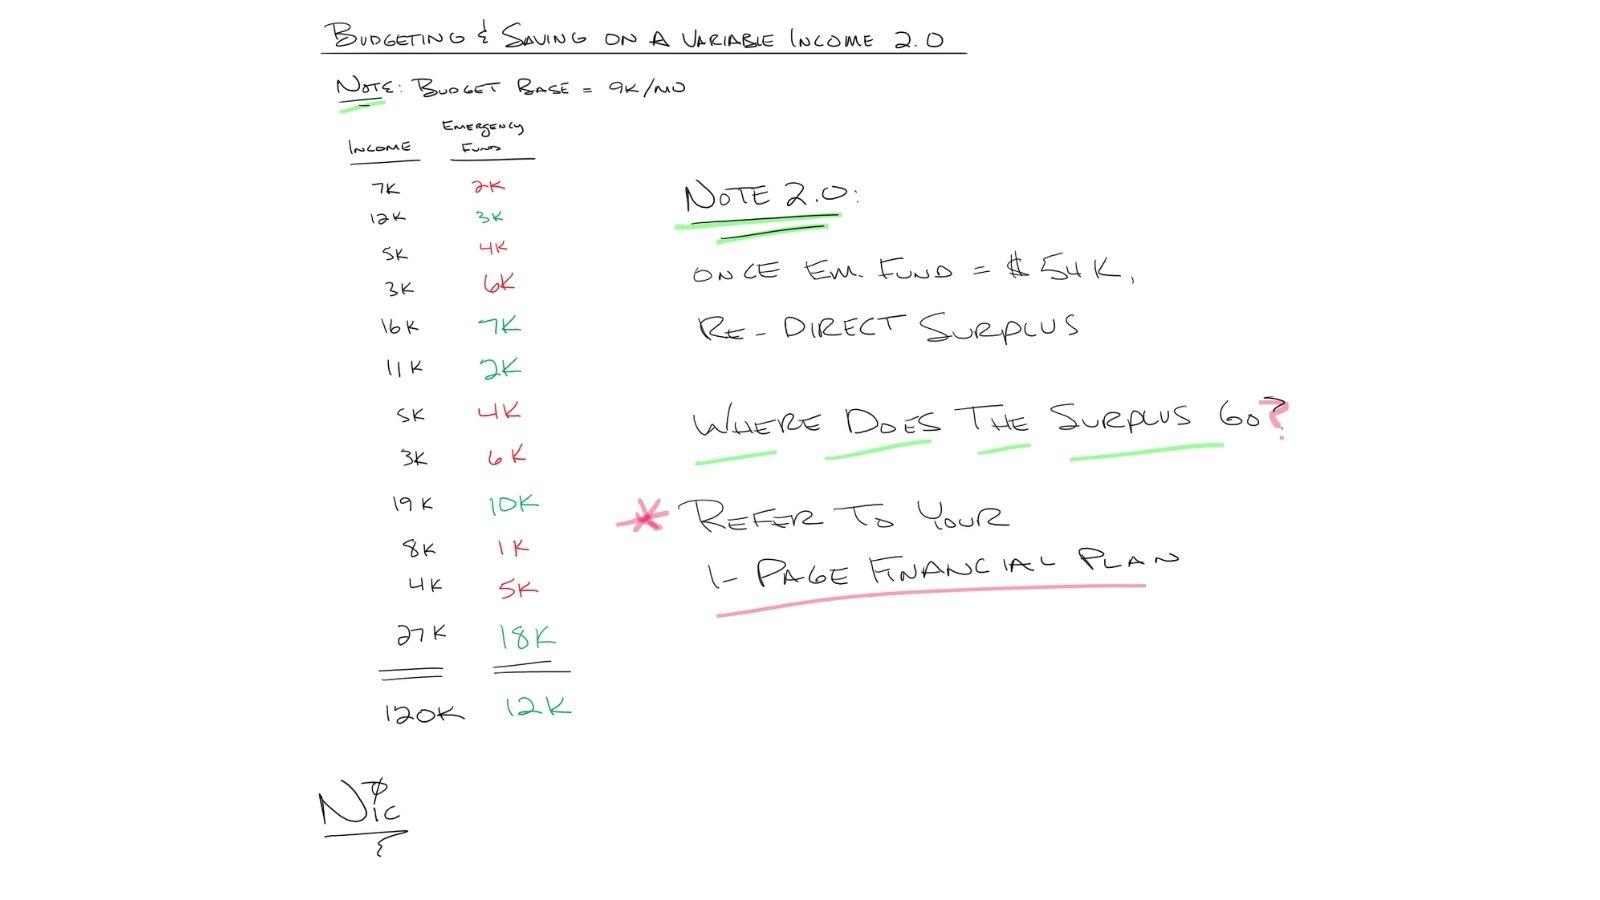 BUDGETING & SAVING ON A VARIABLE INCOME 2.0
NOTE: BUDGET BASE = 9K/MO
INCOME EMERGENCY FUND
7K 2K
12K 3K
5K 4K
3K 6K
16K 7K
11K 2K
5K 4K
3K 6K
19K 10K
8K 1K
4K 5K
27K 18K
120K 12K
NOTE 2.0:
ONCE EM. FUND = $54K,
RE-DIRECT SURPLUS
WHERE DOES THE SURPLUS GO?
* REFER TO YOUR
1-PAGE FINANCIAL PLAN
NIC